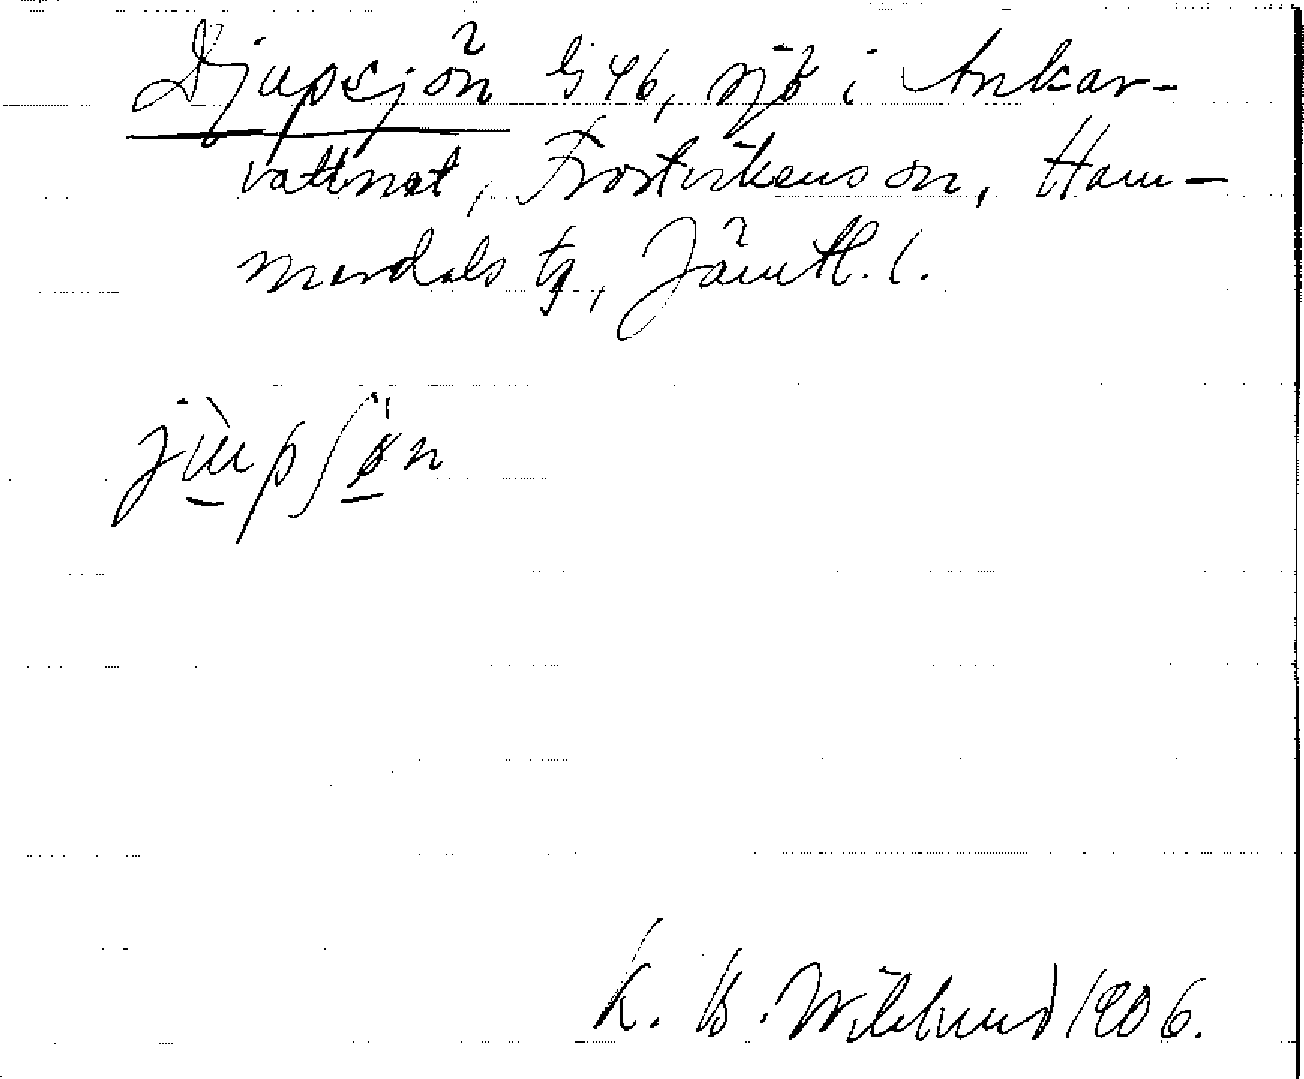 Djupsjön G 46, sjö i Ankar-
vattnet, Frostvikens sn, Ham-
merdals tg, Jämtl. l.
jùpʃøn
K. B. Wiklund 1906.